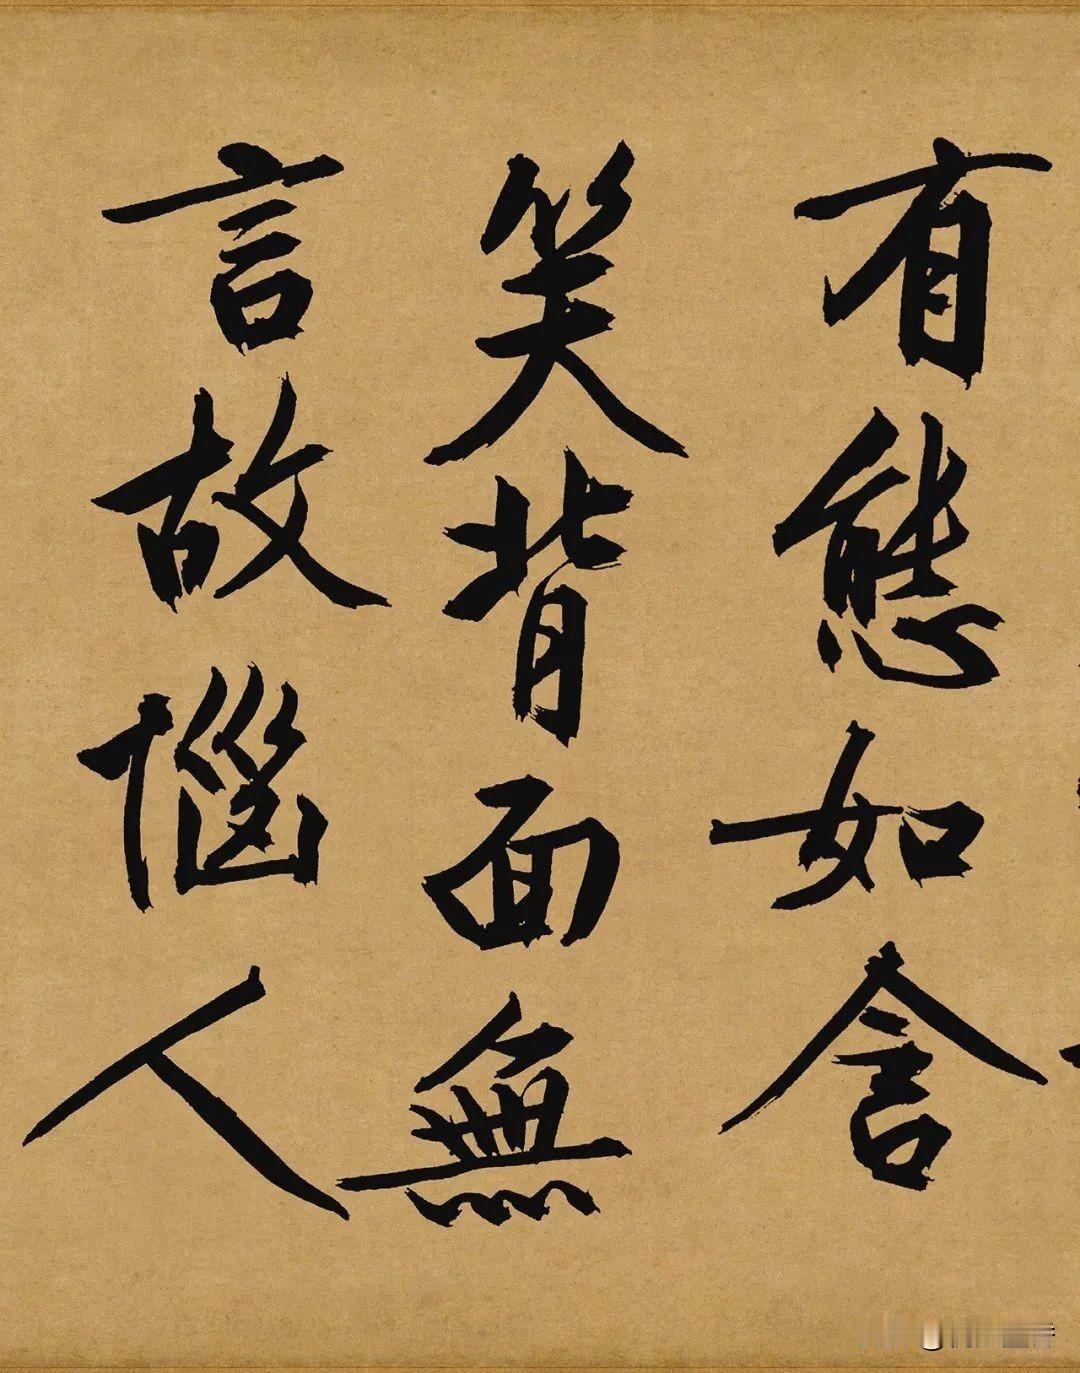 有態如含
笑背面無
言故惱人